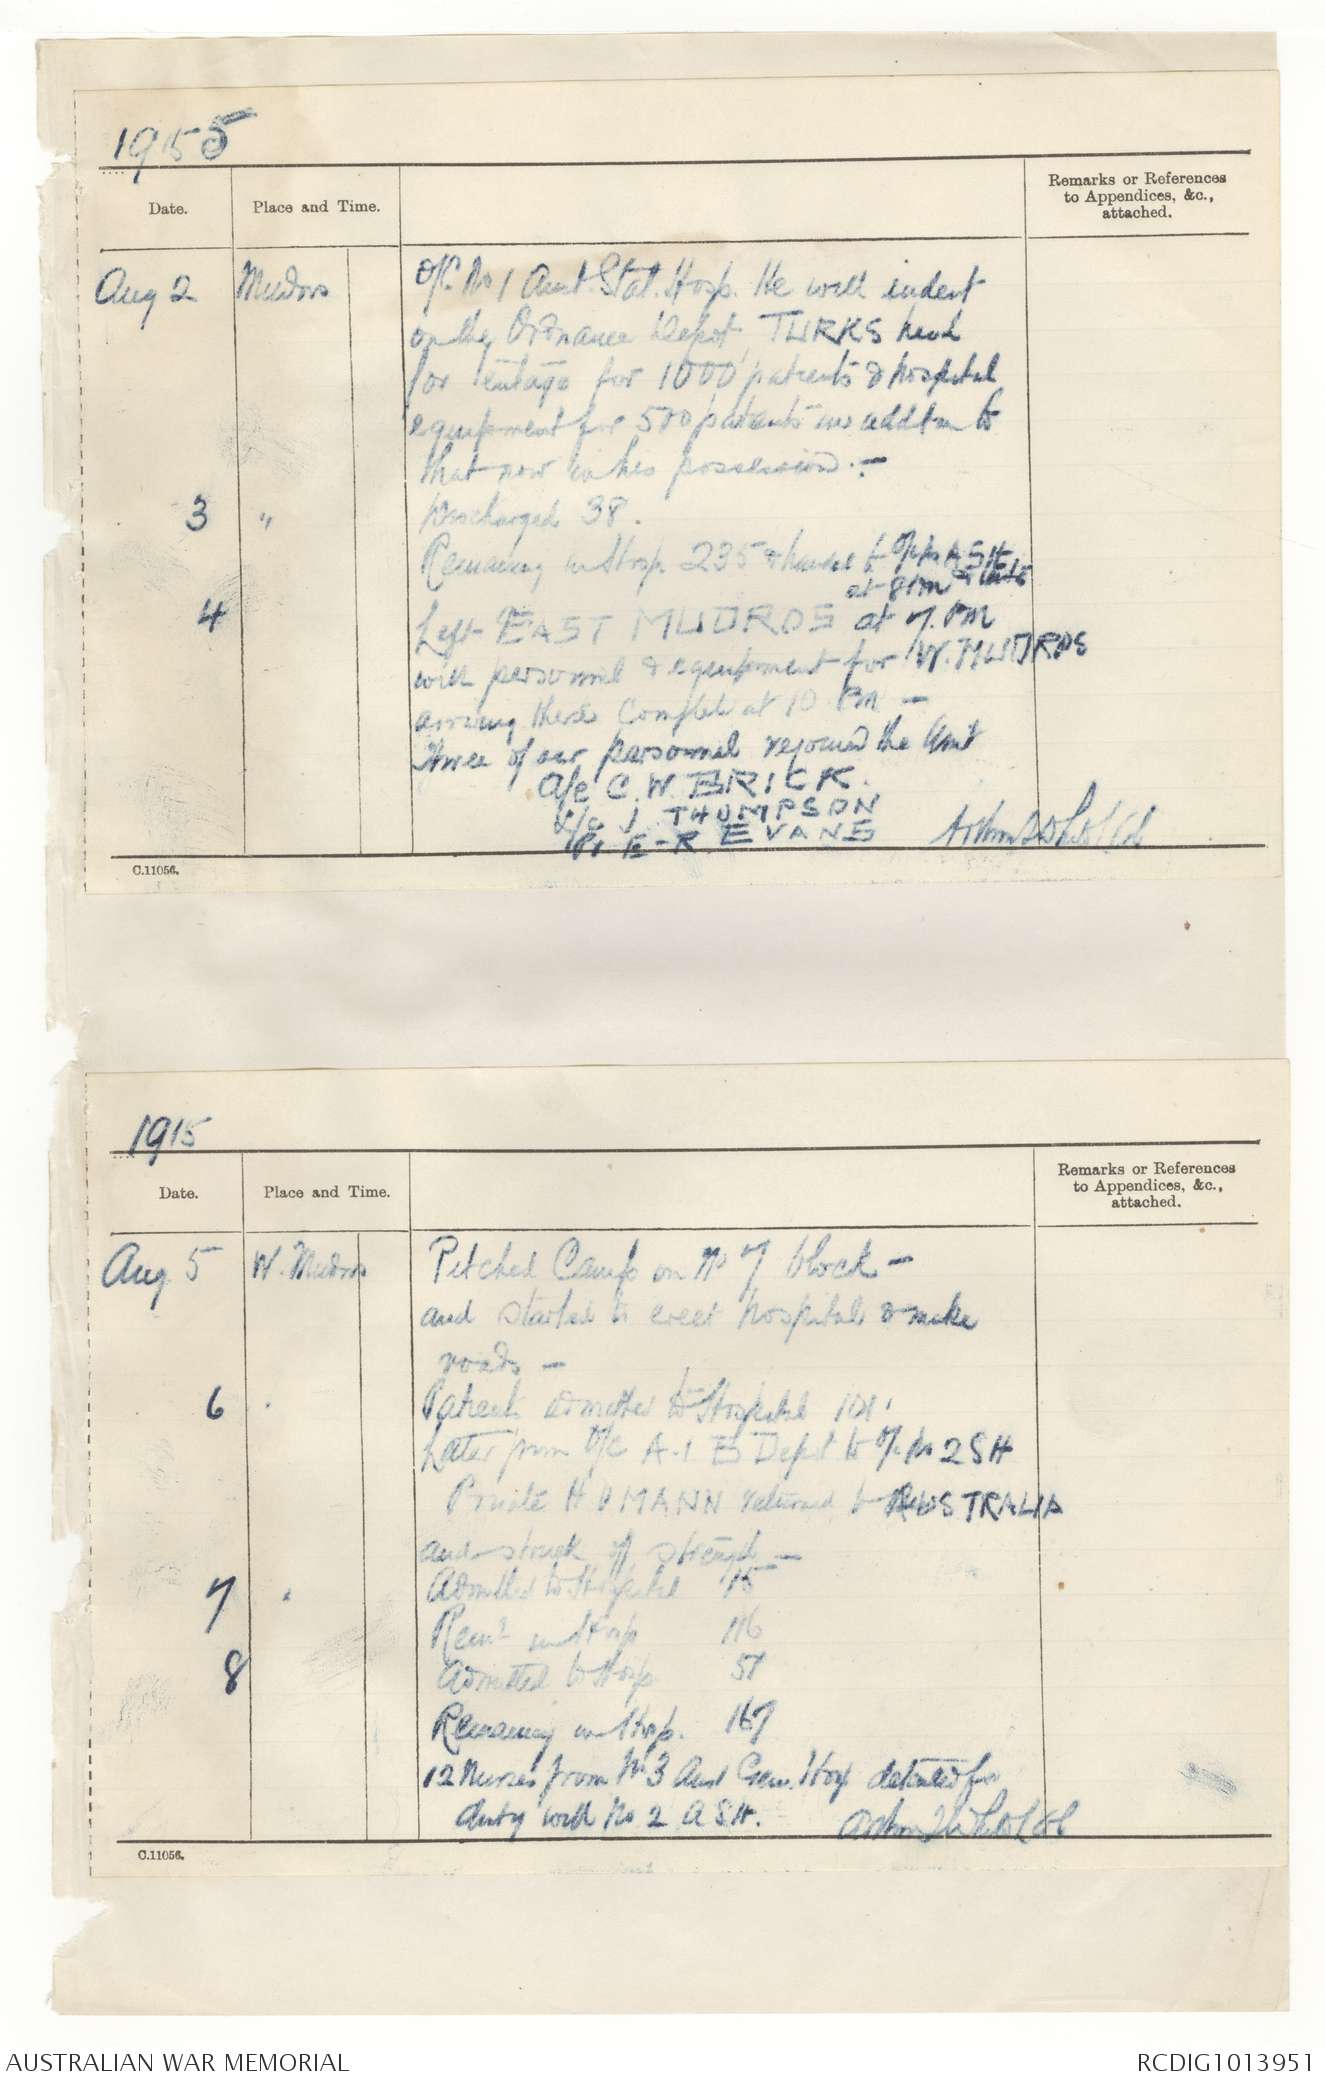 1915
Date. Place and Time. Remarks or References to Appendices, &c., attached.
Aug 2 Mudros O/C. No 1 Aust. Stat. Hosp. He will indent
on the Ordnance Depot, TURKS head
for tentage for 1000 patients & hospital
equipment for 500 patients in addtn to
that now in his possession. —
3 " Discharged 38.
Remaining in Hosp. 235 & handed to O/C No 1 A.S.H.
at 8 PM
4 Left EAST MUDROS at 7. PM
with personnel & equipment for W. MUDROS
arriving there complete at 10 PM —
Three of our personnel rejoined the Unit
C. W. BRICK.
J THOMPSON
Pt E-R EVANS
C.11056.
1915
Date. Place and Time. Remarks or References to Appendices, &c., attached.
Aug 5 W. Mudros Pitched Camp on No 7 block —
and started to erect hospital & make
roads —
6 Patients admitted to Hospital 101.
Letter from O/C A.I.B Depot to O/C No 2 SH
Private H MANN returned to AUSTRALIA
and struck off strength —
7 Admitted to Hospital 15
Remg in Hosp 116
8 Admitted to Hosp 51
Remaining in Hosp. 167
12 Nurses from No 3 Aust Gen. Hosp detailed for
duty with No 2 A SH.
C.11056.
AUSTRALIAN WAR MEMORIAL RCDIG1013951